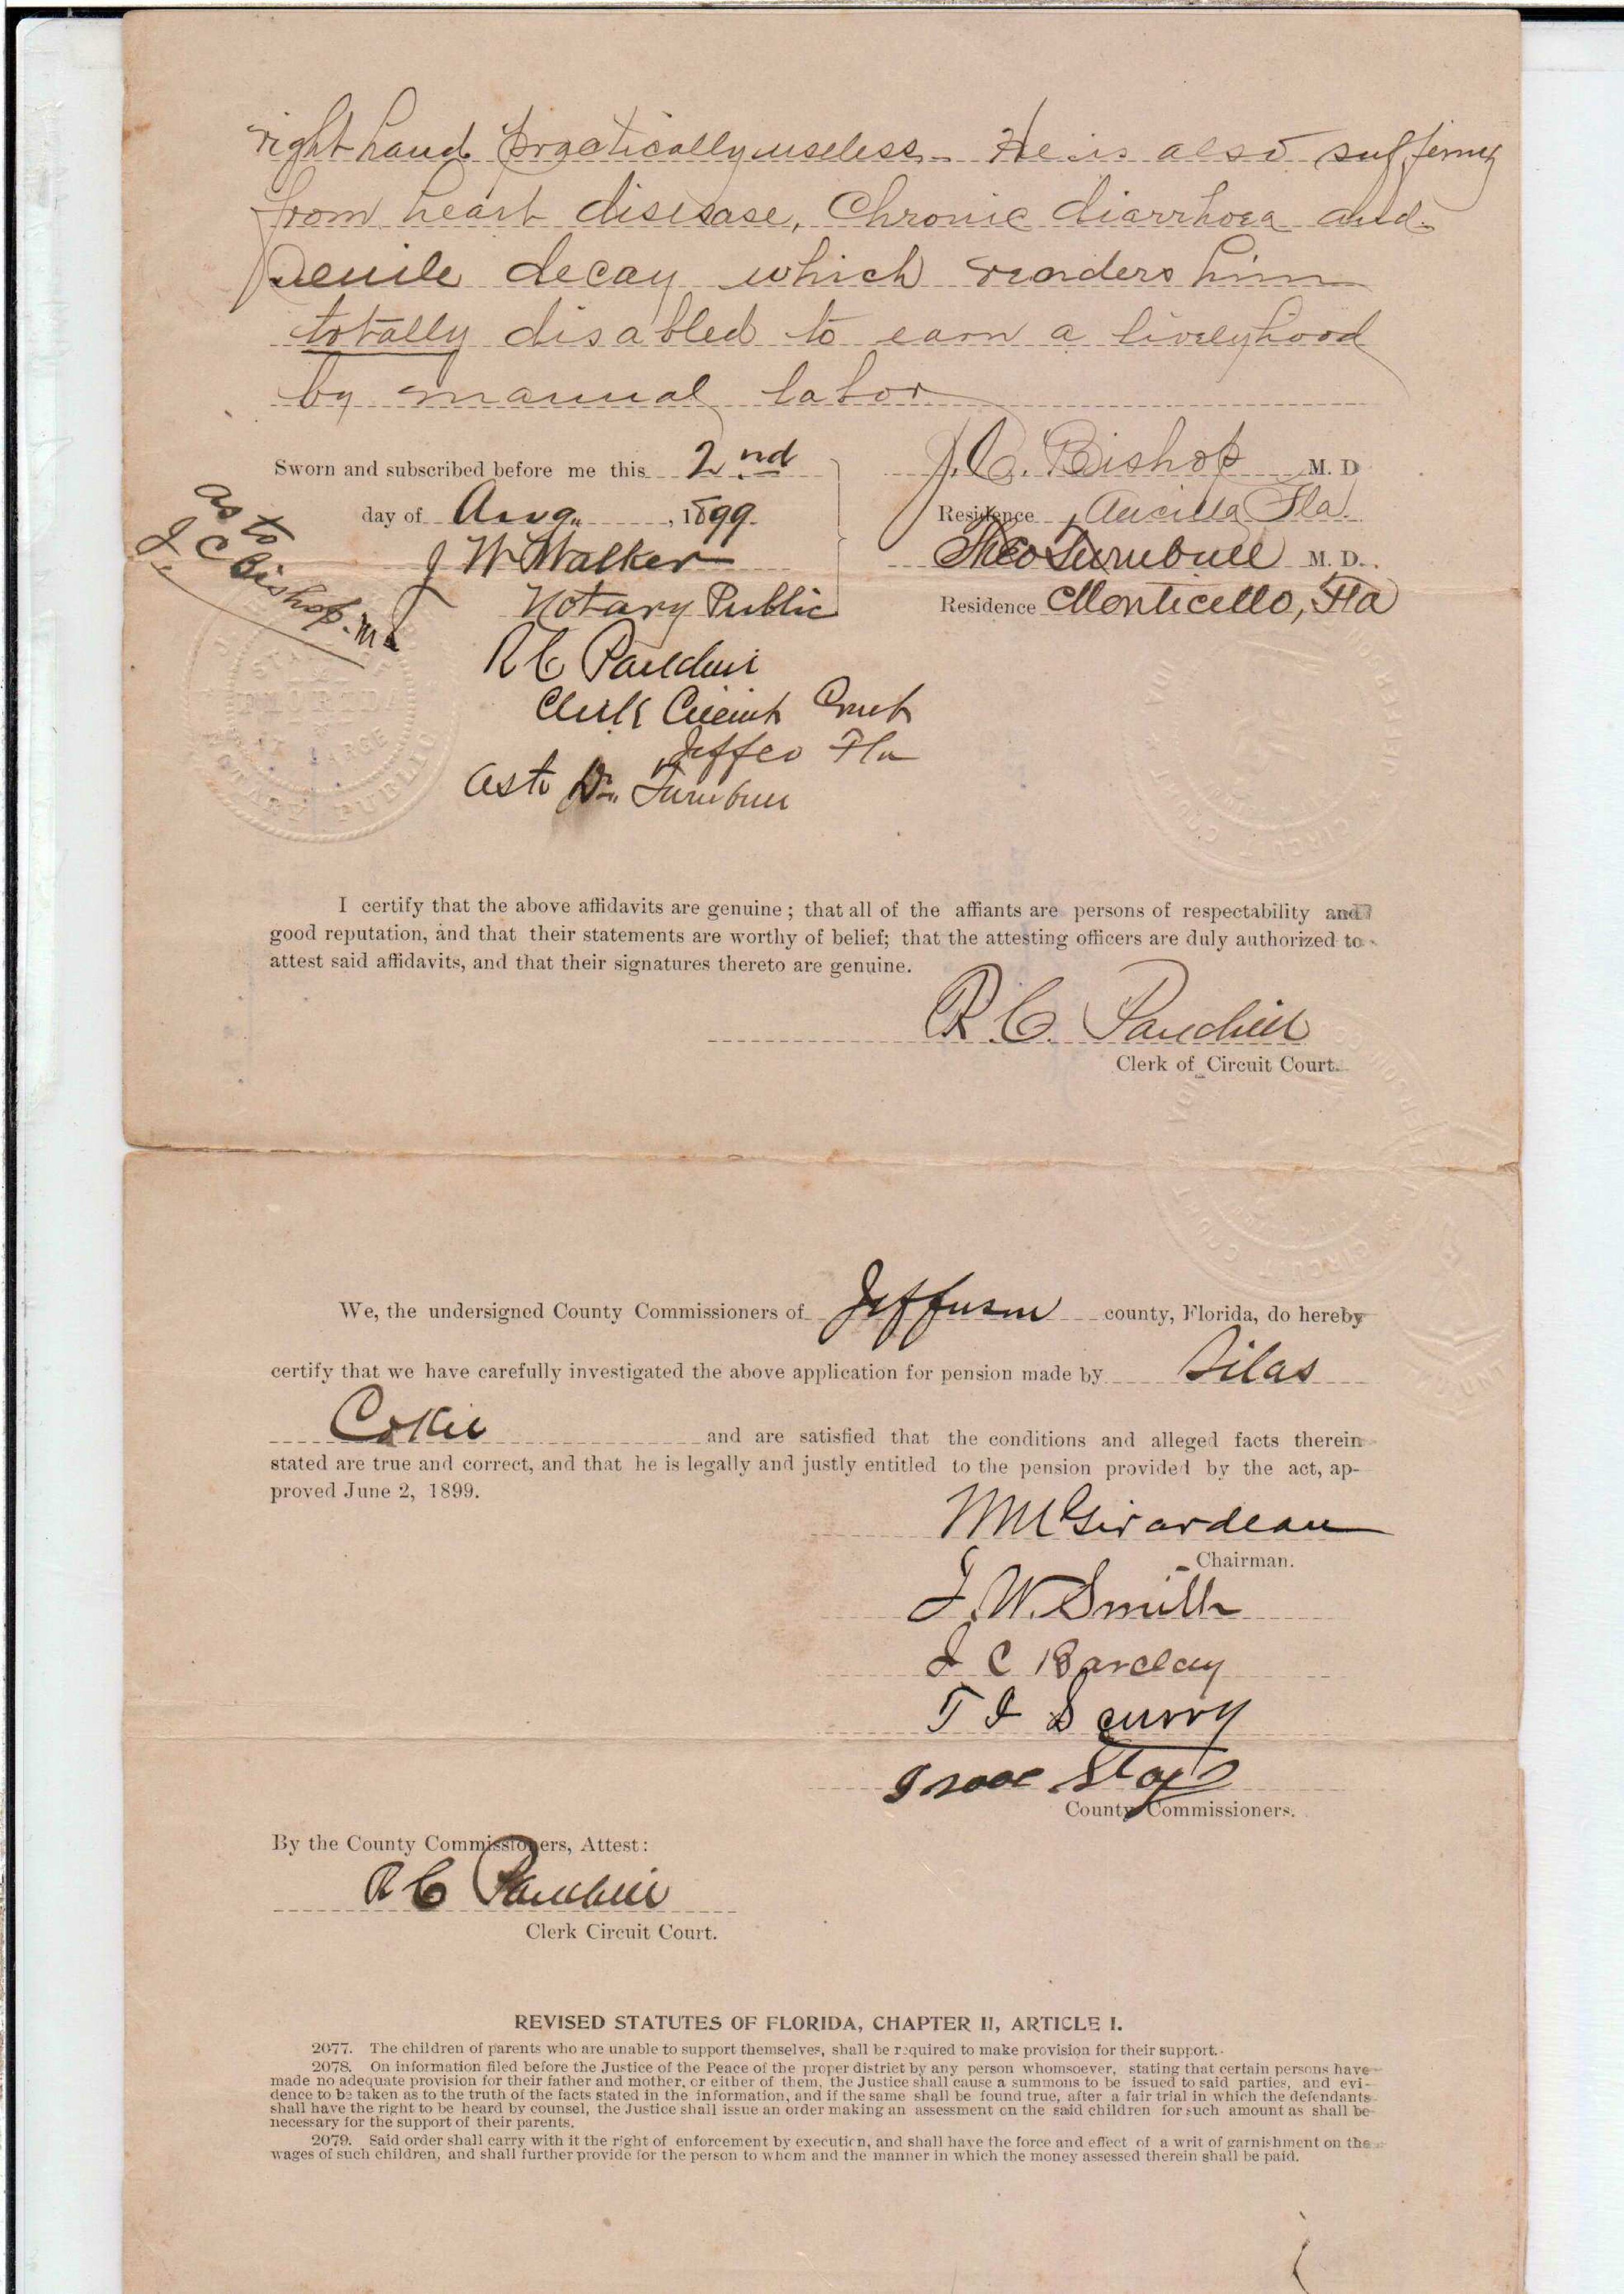 right hand practically useless. He is also suffering
from heart disisase, Chronic diarrhoea and
senile decay which renders him
totally disabled to earn a livelyhood
by manual labor
Sworn and subscribed before me this 2nd
day of Aug. , 1899.
J W Walker
Notary Public
as to
J. C Bishop. M D
J. C. Bishop M. D
Residence Aucilla Fla.
Theo Turnbull M. D.
Residence Monticello, Fla
R C
Clerk Circuit Court
Jeffco Fla
as to Dr. Turnbull
STATE OF
FLORIDA
AT LARGE
NOTARY PUBLIC
I certify that the above affidavits are genuine; that all of the affiants are persons of respectability and
good reputation, and that their statements are worthy of belief; that the attesting officers are duly authorized to
attest said affidavits, and that their signatures thereto are genuine.
R. C.
Clerk of Circuit Court.
We, the undersigned County Commissioners of Jefferson county, Florida, do hereby
certify that we have carefully investigated the above application for pension made by Silas
Cokie and are satisfied that the conditions and alleged facts therein
stated are true and correct, and that he is legally and justly entitled to the pension provided by the act, ap-
proved June 2, 1899.
Girardeau
Chairman.
J. W. Smith
J C Barclay
T J Scurry
Isaac
County Commissioners.
By the County Commissioners, Attest:
R C
Clerk Circuit Court.
REVISED STATUTES OF FLORIDA, CHAPTER II, ARTICLE I.
2077. The children of parents who are unable to support themselves, shall be required to make provision for their support.
2078. On information filed before the Justice of the Peace of the proper district by any person whomsoever, stating that certain persons have
made no adequate provision for their father and mother, or either of them, the Justice shall cause a summons to be issued to said parties, and evi-
dence to be taken as to the truth of the facts stated in the information, and if the same shall be found true, after a fair trial in which the defendants
shall have the right to be heard by counsel, the Justice shall issue an order making an assessment on the said children for such amount as shall be
necessary for the support of their parents.
2079. Said order shall carry with it the right of enforcement by execution, and shall have the force and effect of a writ of garnishment on the
wages of such children, and shall further provide for the person to whom and the manner in which the money assessed therein shall be paid.